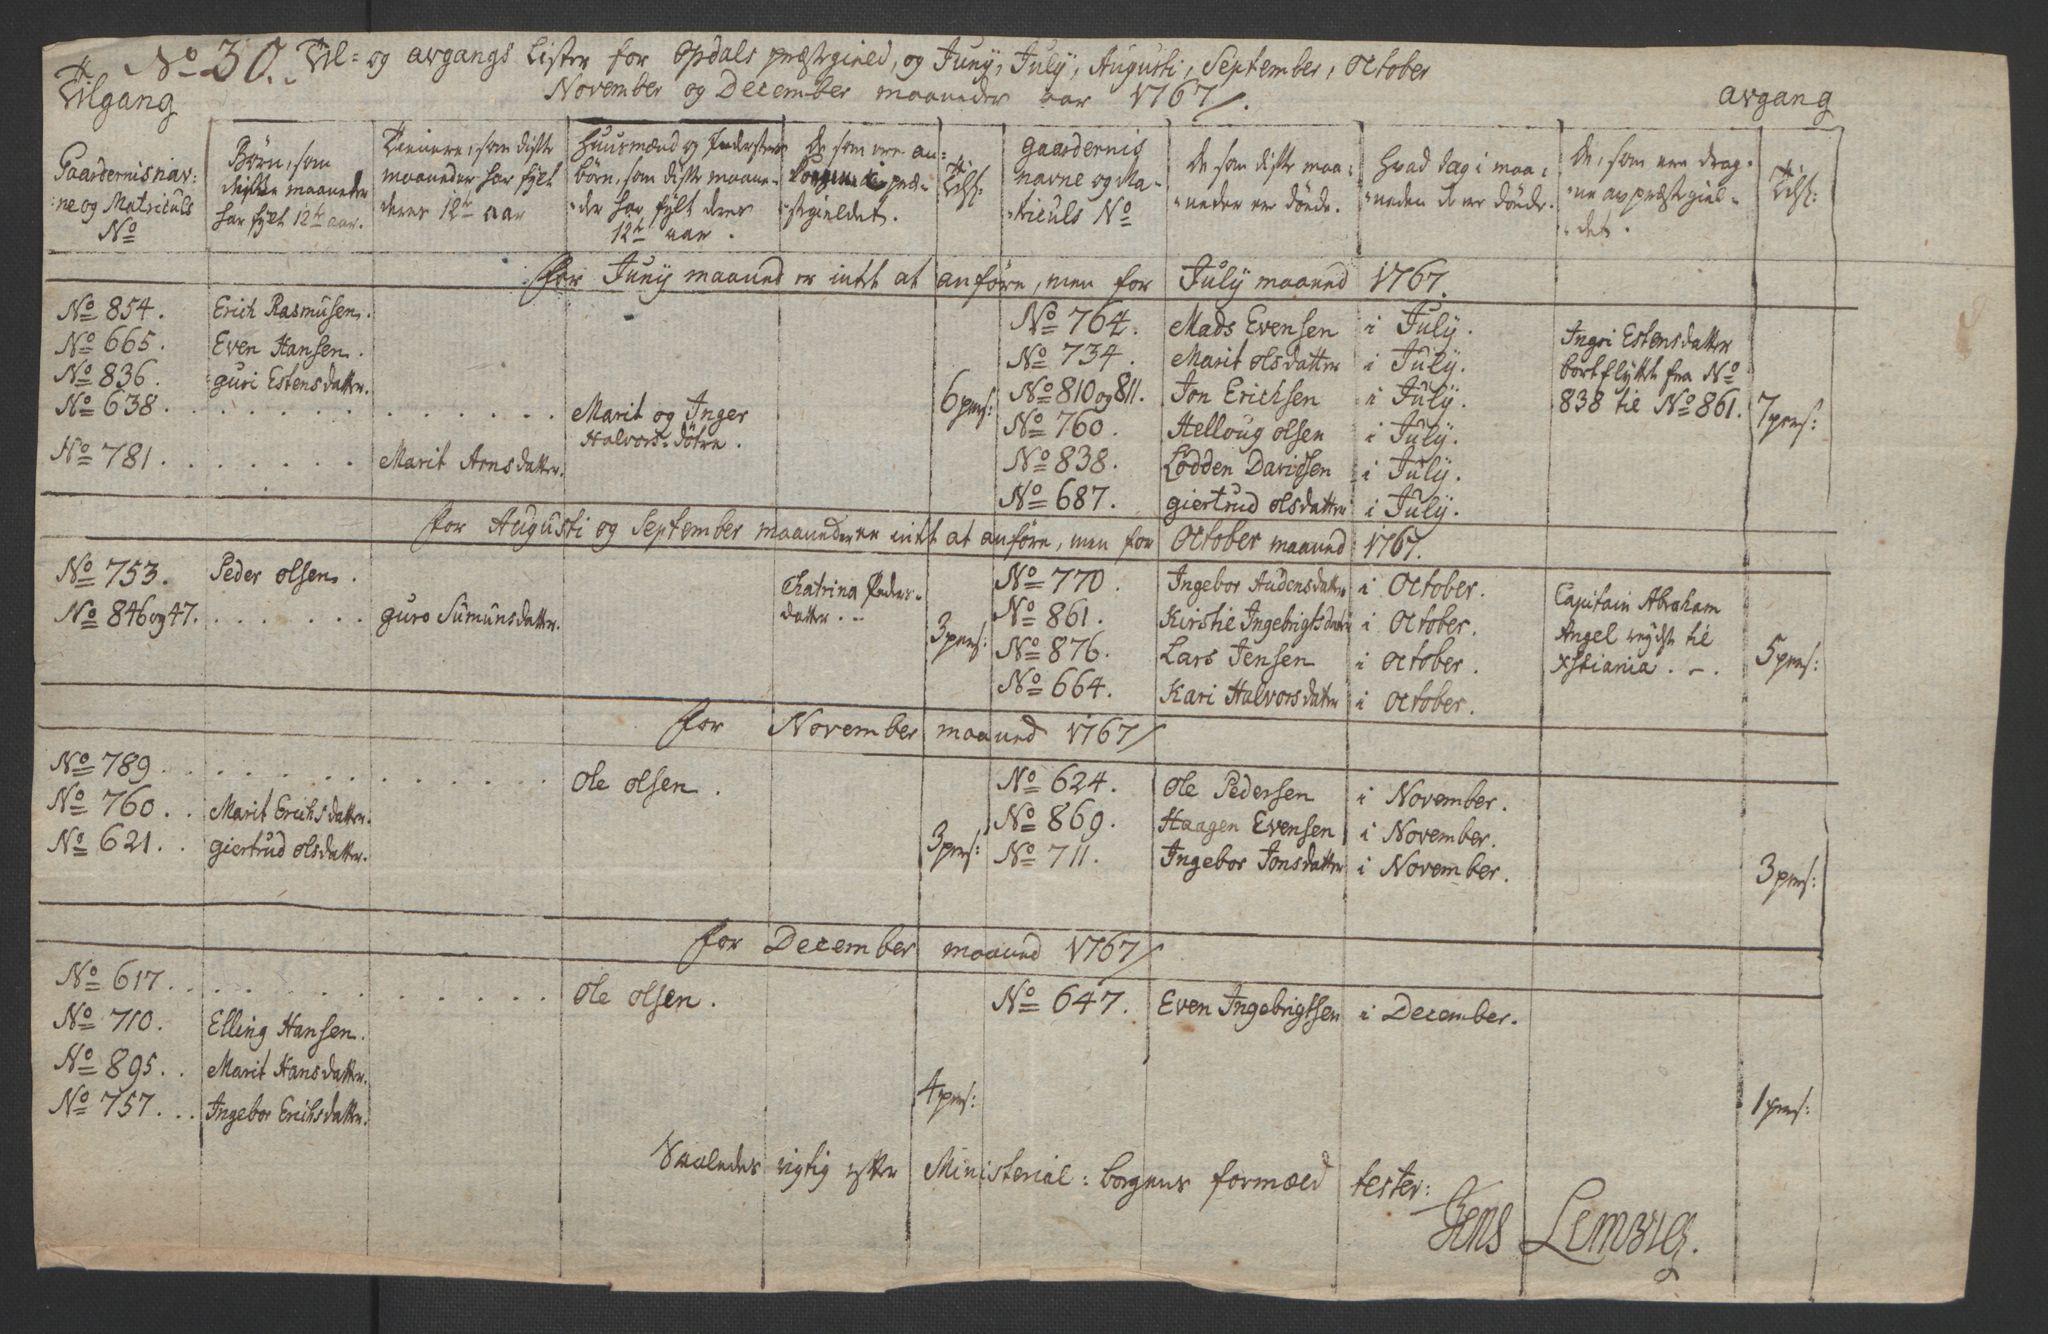 No 30. Til= og avgangs Lister for Opdals præstgield, og Juny, July, Augusti, September, October
November og December maaneder aar 1767/.
Tilgang
avgang
Gaardernis nav:
:ne og Matriculs
No
Børn, som
diſſe maaneder
har fylt 12te aar.
Tienere, som diſſe
maaneder har fylt
deres 12te aar
Huusmænd og Inderster
børn, som diſſe maane-
-der har fylt deres
12te aar.
De som ere an-
præ-
-stgieldet.
Tils:
gaardernis
navne og Ma-
-triculs No
De som diſſe maa-
-neder ere døøde.
Hvad dag i maa-
-neden de ere døøde.
De, som ere drag-
-ne av præstgiel-
-det.
Tils:
for Juny maaned er intet at anføre, men for July maaned 1767.
No 854. Erich Rasmusen.
No 665. Even Hansen.
No 836. guri Estensdatter.
No 638. . . . . . . . . . . . . Marit og Inger
Halvors-døtre.
No 781. . . . . . . Marit Arnsdatter.
6 pers:
No 764. Mads Evensen i July.
No 734. Marit olsdatter i July.
No 810 og 811. Jon Erichsen i July.
No 760. Helloug olsen i July.
No 838. Lodden Davidsen i July.
No 687. giertrud olsdatter i July.
Ingri Estensdatter
bortflyttet fra No
838 til No 861.
7 pers:
for Augusti og September maaneder er intet at anføre, men for October maaned 1767.
No 753. Peder olsen.
No 846 og 47. . . . . . . guro Sumunsdatter.
Chatrina Peders-
datter . -
3 pers:
No 770. Ingebor Audensdatter i October.
No 861. Kirstie Ingebrigtsdatter i October.
No 876. Lars Jensen i october.
No 664. Kari Halvorsdater i october.
Capitain Abraham
Angel reyste til
Xstiania . - .
5 pers:
for November maaned 1767/
No 789 . . . . . . . . . . . . Ole olsen.
No 760. . Marit Erichsdatter.
No 621. . giertrud olsdatter.
3 pers:
No 624. Ole Pedersen i November.
No 869. Haagen Evensen i November.
No 711. Ingebor Jonsdatter i November.
3 pers:
for December maaned 1767/
No 617. . . . . . . . . . . . Ole olsen.
No 710. Elling Hansen.
No 895. . Marit Hansdatter.
No 757. . . Ingebor Erichsdatter.
4 pers:
No 647. Even Ingebrigtsen i December.
1 pers:
Saaledes rigtig efter Ministerial: bogens formæld tester:
Jens Lemvig.